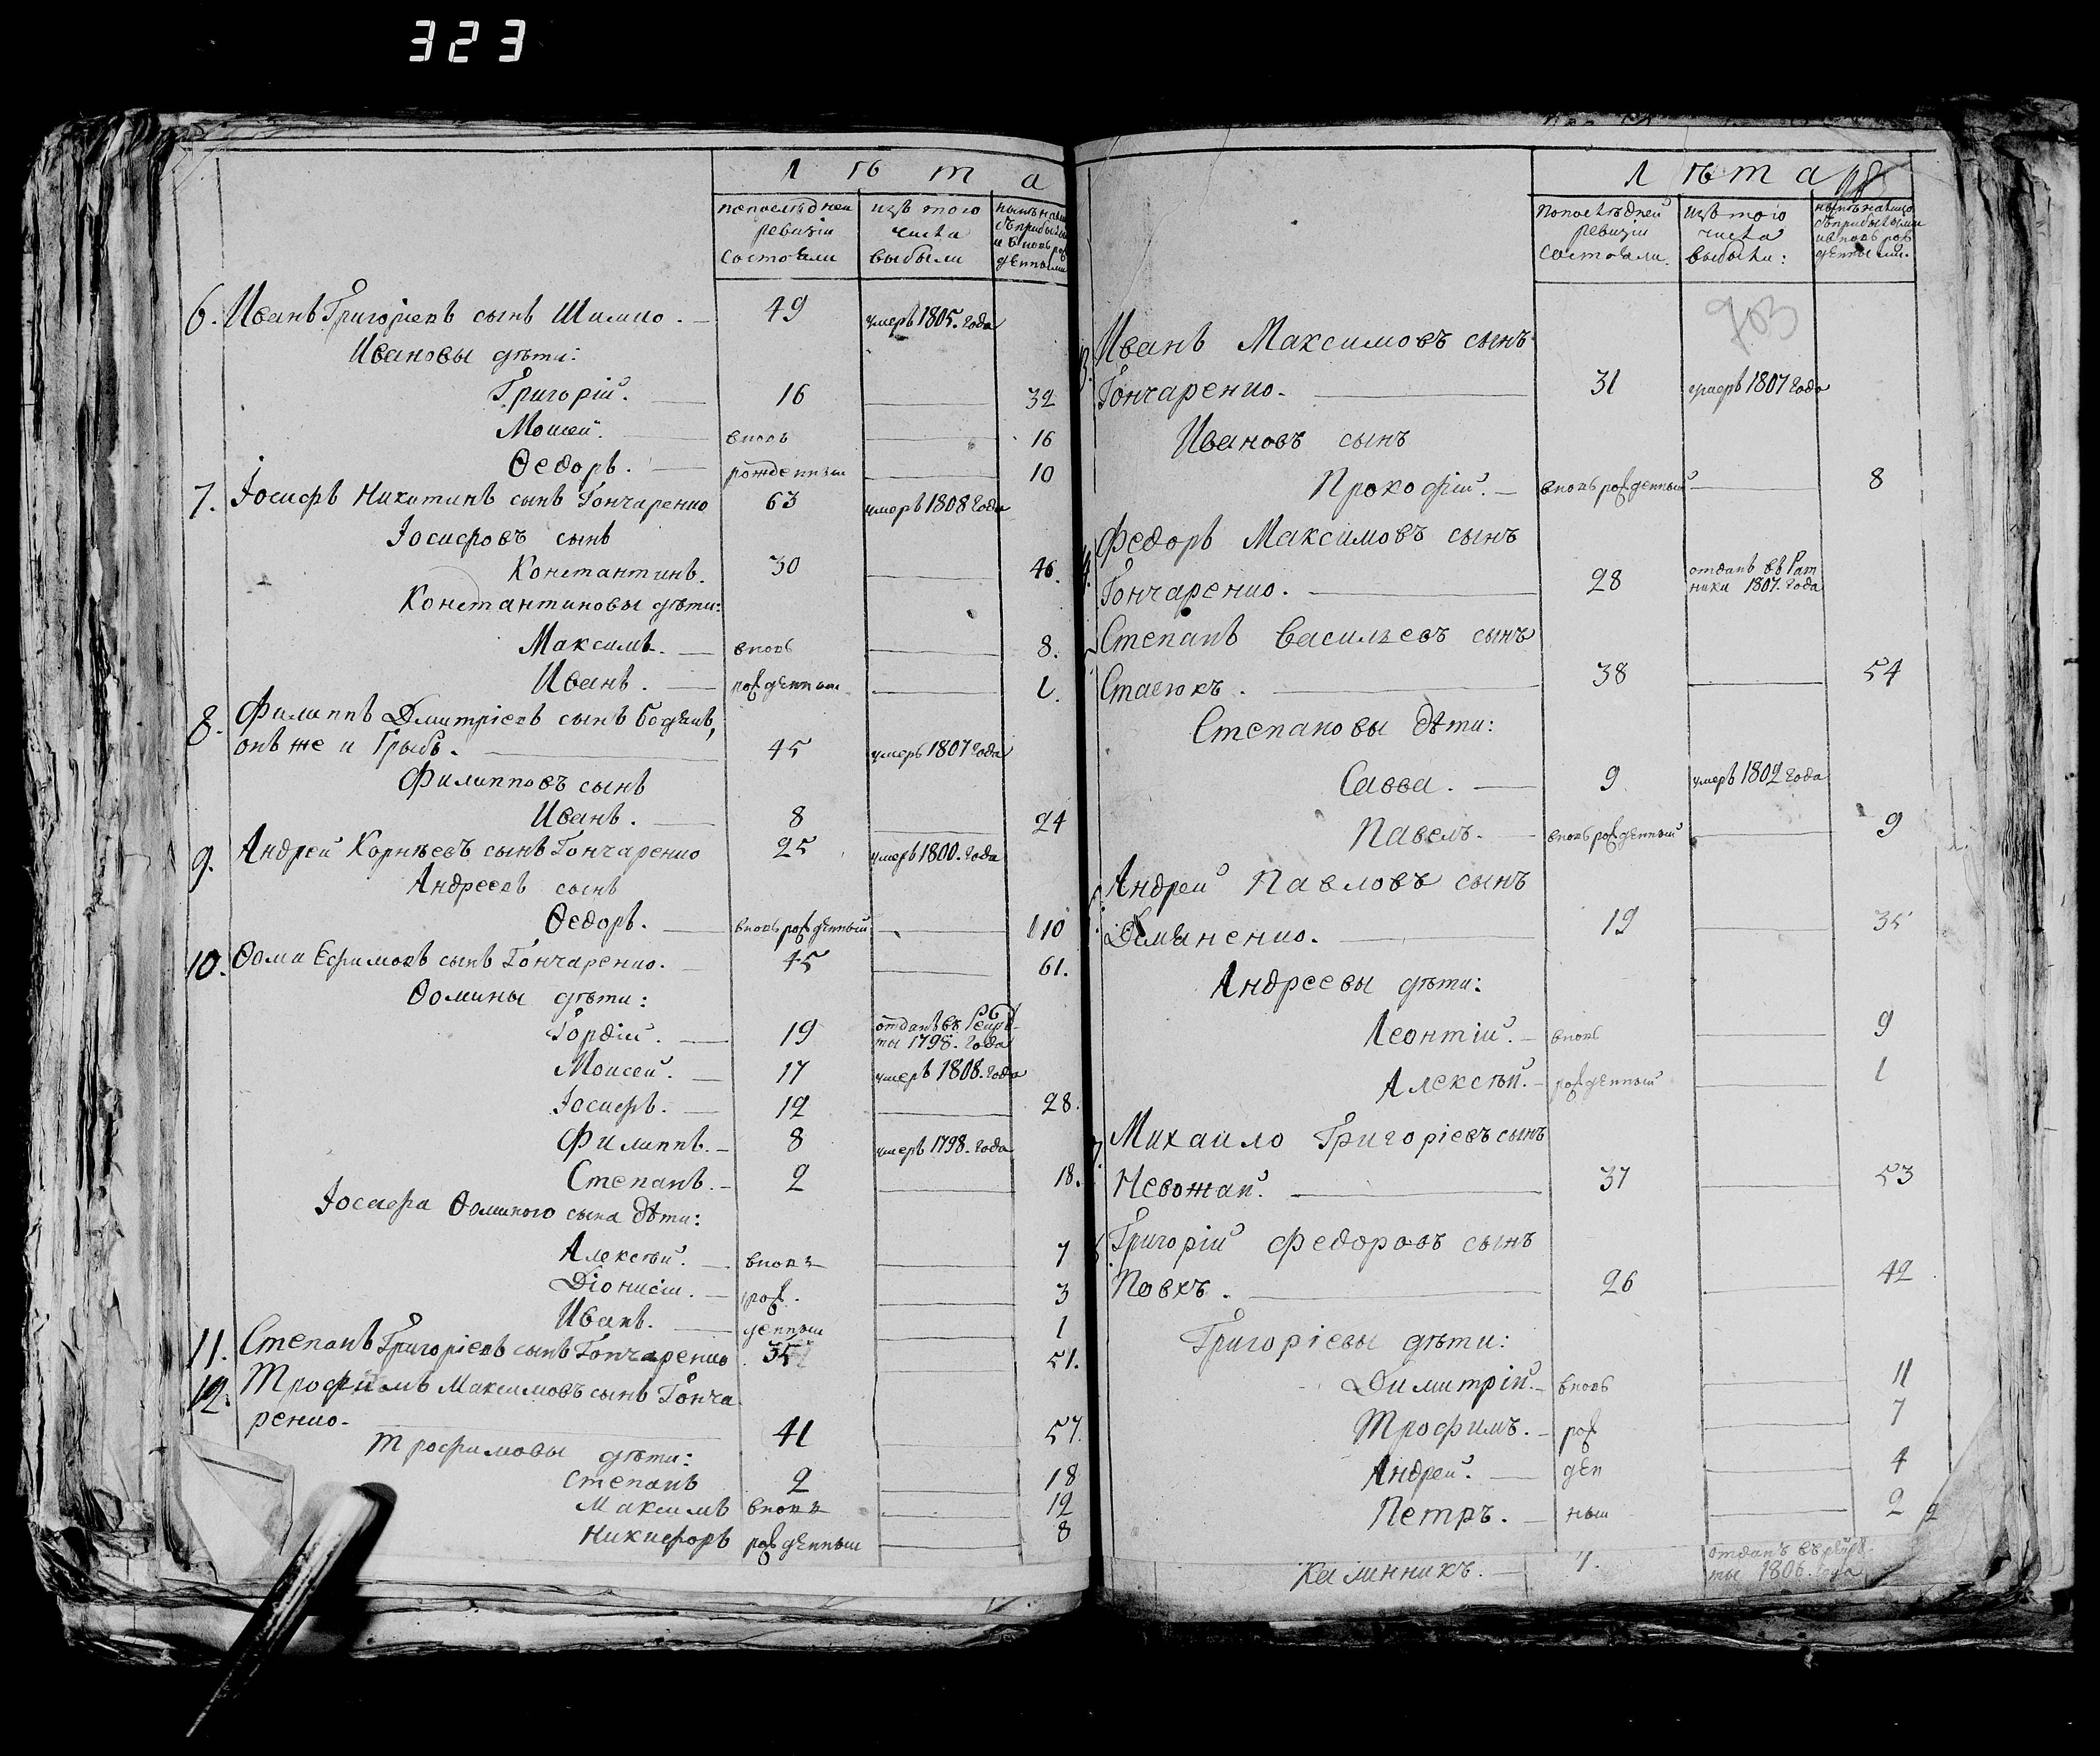 323
Лѣта
По послѣдней ревизіи состояли
изъ того числа выбыли
6. Иванъ Григорiевъ сынъ Шишло. 49 умеръ 1805. года
Ивановы дѣти:
Григорій. 16 32
Мойсей. вновь 16
Ѳедоръ. рожденныи 10
7. Іосифъ Никитинъ сынъ Гончаренко 63 умеръ 1808 года
Іосифовъ сынъ
Константинъ. 30 46.
Константиновы дѣти:
Максимъ. вновь 8.
Иванъ. рожденныи 1.
8. Филиппъ Дмитріевъ сынъ
онъ же и Грыбъ. 45 умеръ 1807 года
Филипповъ сынъ
Иванъ. 8 24
9. Андрей Корнѣевъ сынъ Гончаренко 25 умеръ 1800. года
Андреевъ сынъ
Ѳедоръ. вновь рожденный 10
10. Ѳома Ефимовъ сынъ Гончаренко. 45 61.
Ѳомины дѣти:
Гордій. 19 отданъ въ Рекру-
ты 1798. года
Моисей. 17 умеръ 1808. года
Іосифъ. 12 28.
Филиппъ. 8 умеръ 1798. года
Степанъ. 2 18.
Іосифа Ѳоминого сына дѣти:
Алексѣй. вновь 7
Діонисій. рож. 3
Иванъ. денныи 1
11. Степанъ Григоріевъ сынъ Гончаренко. 35 51.
12. Трофимъ Максимовъ сынъ Гонча
ренко. 41 57.
Трофимовы дѣти:
Степанъ 2 18
Максимъ вновь 12
Никифоръ рожденныи 8
Лѣта
По послѣдней ревизіи состояли.
изъ того числа выбыли:
Иванъ Максимовъ сынъ
Гончаренко. 31 умеръ 1807 года
Ивановъ сынъ
Прокофій. вновь рожденный 8
Федоръ Максимовъ сынъ
Гончаренко. 28 отданъ въ Рат
ники 1807. года
Степанъ Васильевъ сынъ
Стасюкъ. 38 54
Степановы дѣти:
Савва. 9 умеръ 1802 года
Павелъ. вновь рожденный 9
Андрей Павловъ сынъ
Демяненко. 19 35
Андреевы дѣти:
Леонтій. вновь 9
Алексѣй. рожденный 1
Михайло Григоріевъ сынъ
Невожай. 37 53
Григорій Федоровъ сынъ
Повхъ. 26 42
Григоріевы дѣти:
Димитрій. вновь 11
Трофимъ. рож 7
Андрей. ден 4
Петръ. ныи 2
Калинникъ. 7. отданъ въ рекру
ты 1806. года